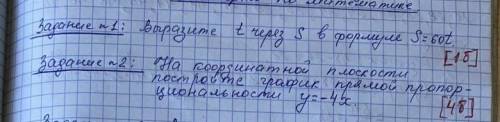 по математике
Задание №1: Выразите t через S в формуле S=60t.
[1б]
Задание №2: На координатной плоскости
постройте график прямой пропор-
циональности y=-4x.
[4б]